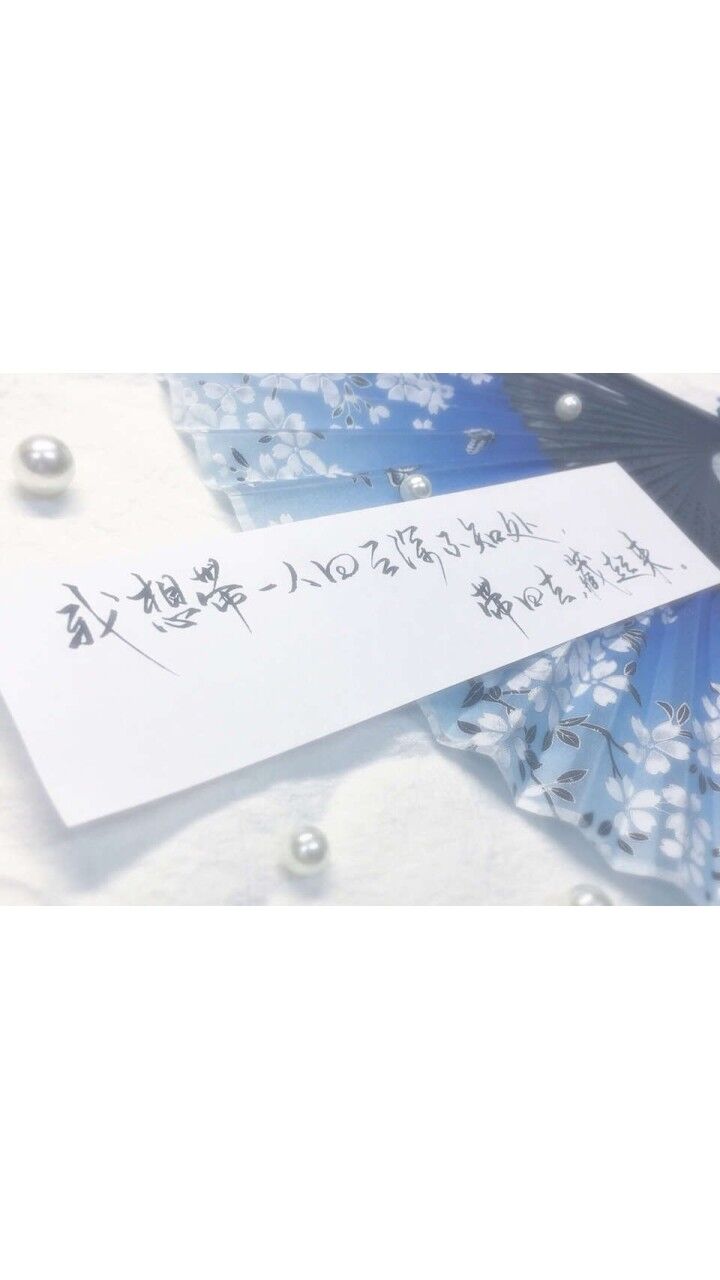 我想带一人回云深不知处，
带回去，藏起来。